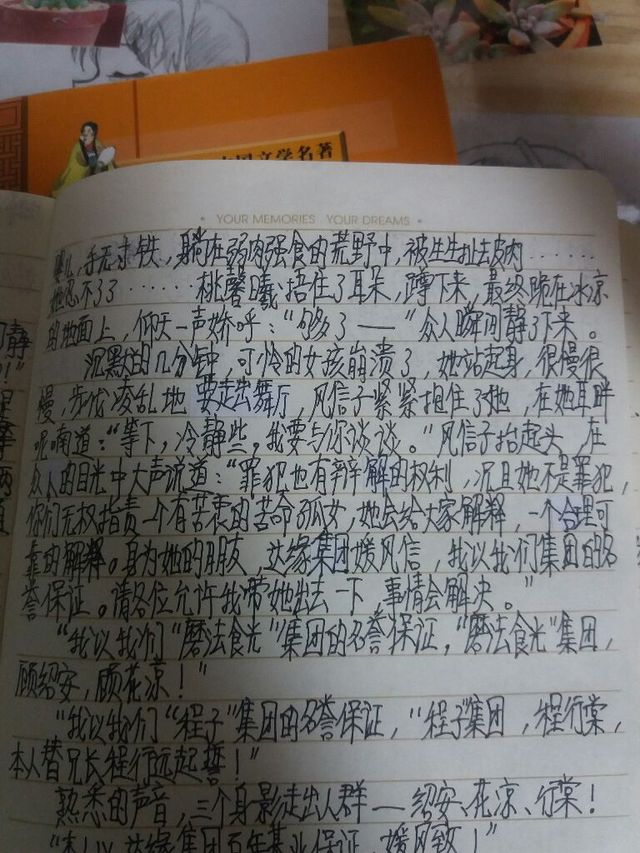 中国文学名著
YOUR MEMORIES YOUR DREAMS
儿,手无寸铁,躺在弱肉强食的荒野中,被生生扯去皮肉……
她忍不了了……桃馨曦捂住了耳朵,蹲下来,最终跪在冰凉
的地面上,仰天一声娇呼:“够了——”众人瞬间静了下来。
沉默的几分钟,可怜的女孩崩溃了,她站起身,很慢很
慢,步伐凌乱地要走出舞厅,风信子紧紧抱住了她,在她耳畔
呢喃道:“等下,冷静些,我要与你谈谈。”风信子抬起头,在
众人的目光中大声说道:“罪犯也有辩解的权利,况且她不是罪犯,
你们无权指责一个有苦衷的苦命孤女,她会给大家解释,一个合理可
靠的解释。身为她的朋友,达缘集团媛风信,我以我们集团的名
誉保证。请各位允许我带她出去一下,事情会解决。”
“我以我们“磨法食光”集团的名誉保证,“磨法食光”集团,
顾绍安,顾花凉!”
“我以我们“程子”集团的名誉保证,“程子”集团,程行棠,
本人替兄长程行远起誓!”
熟悉的声音,三个身影走出人群——绍安、花凉、行棠!
“本人以达缘集团百年基业保证,媛风致!”